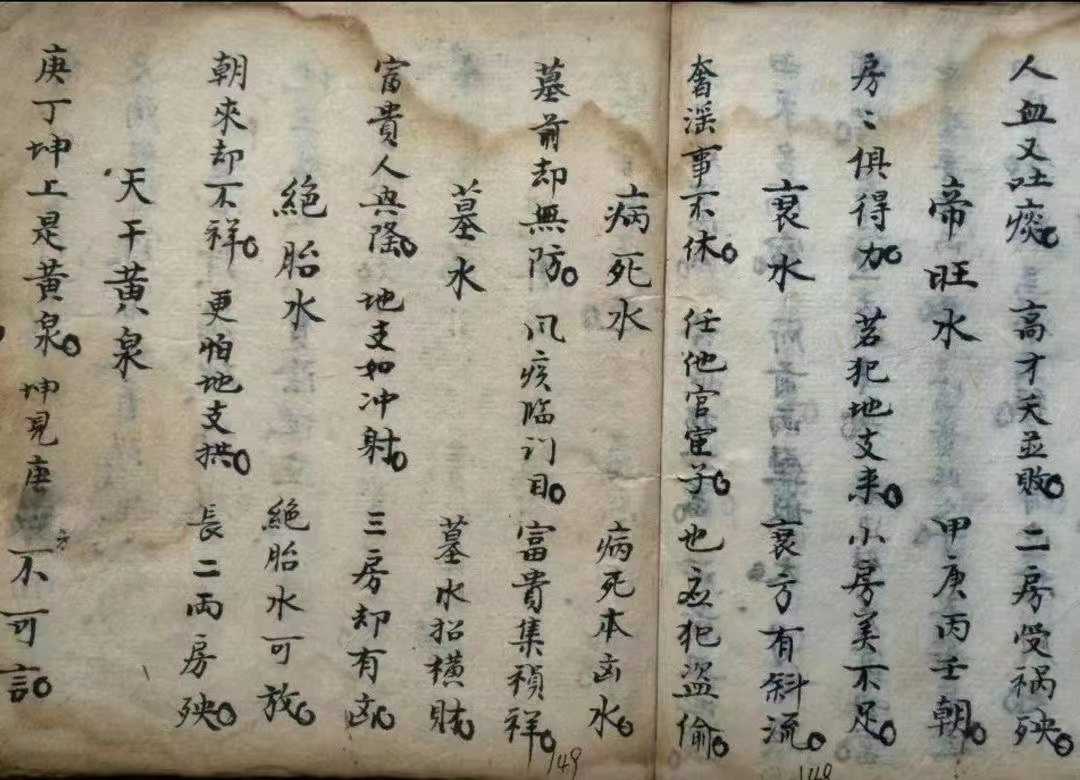 人血又吐痰。高才夭並敗。二房受禍殃。
帝旺水 甲庚丙壬朝。
房〻俱得力。若犯地支来。小房美不足。
衰水 衰方有斜流。
奢淫事不休。任他官宦子。也应犯盜偷。
病死水 病死本凶水。
墓前却無防。风疾临门目。富貴集禎祥。
墓水 墓水招横财。
富貴人興隆。地支如冲射。三房却有凶。
絕胎水 絕胎水可放。
朝來却不祥。更怕地支拱。長二兩房殃。
天干黄泉
庚丁坤上是黄泉。坤見庚 方不可言。
149
148